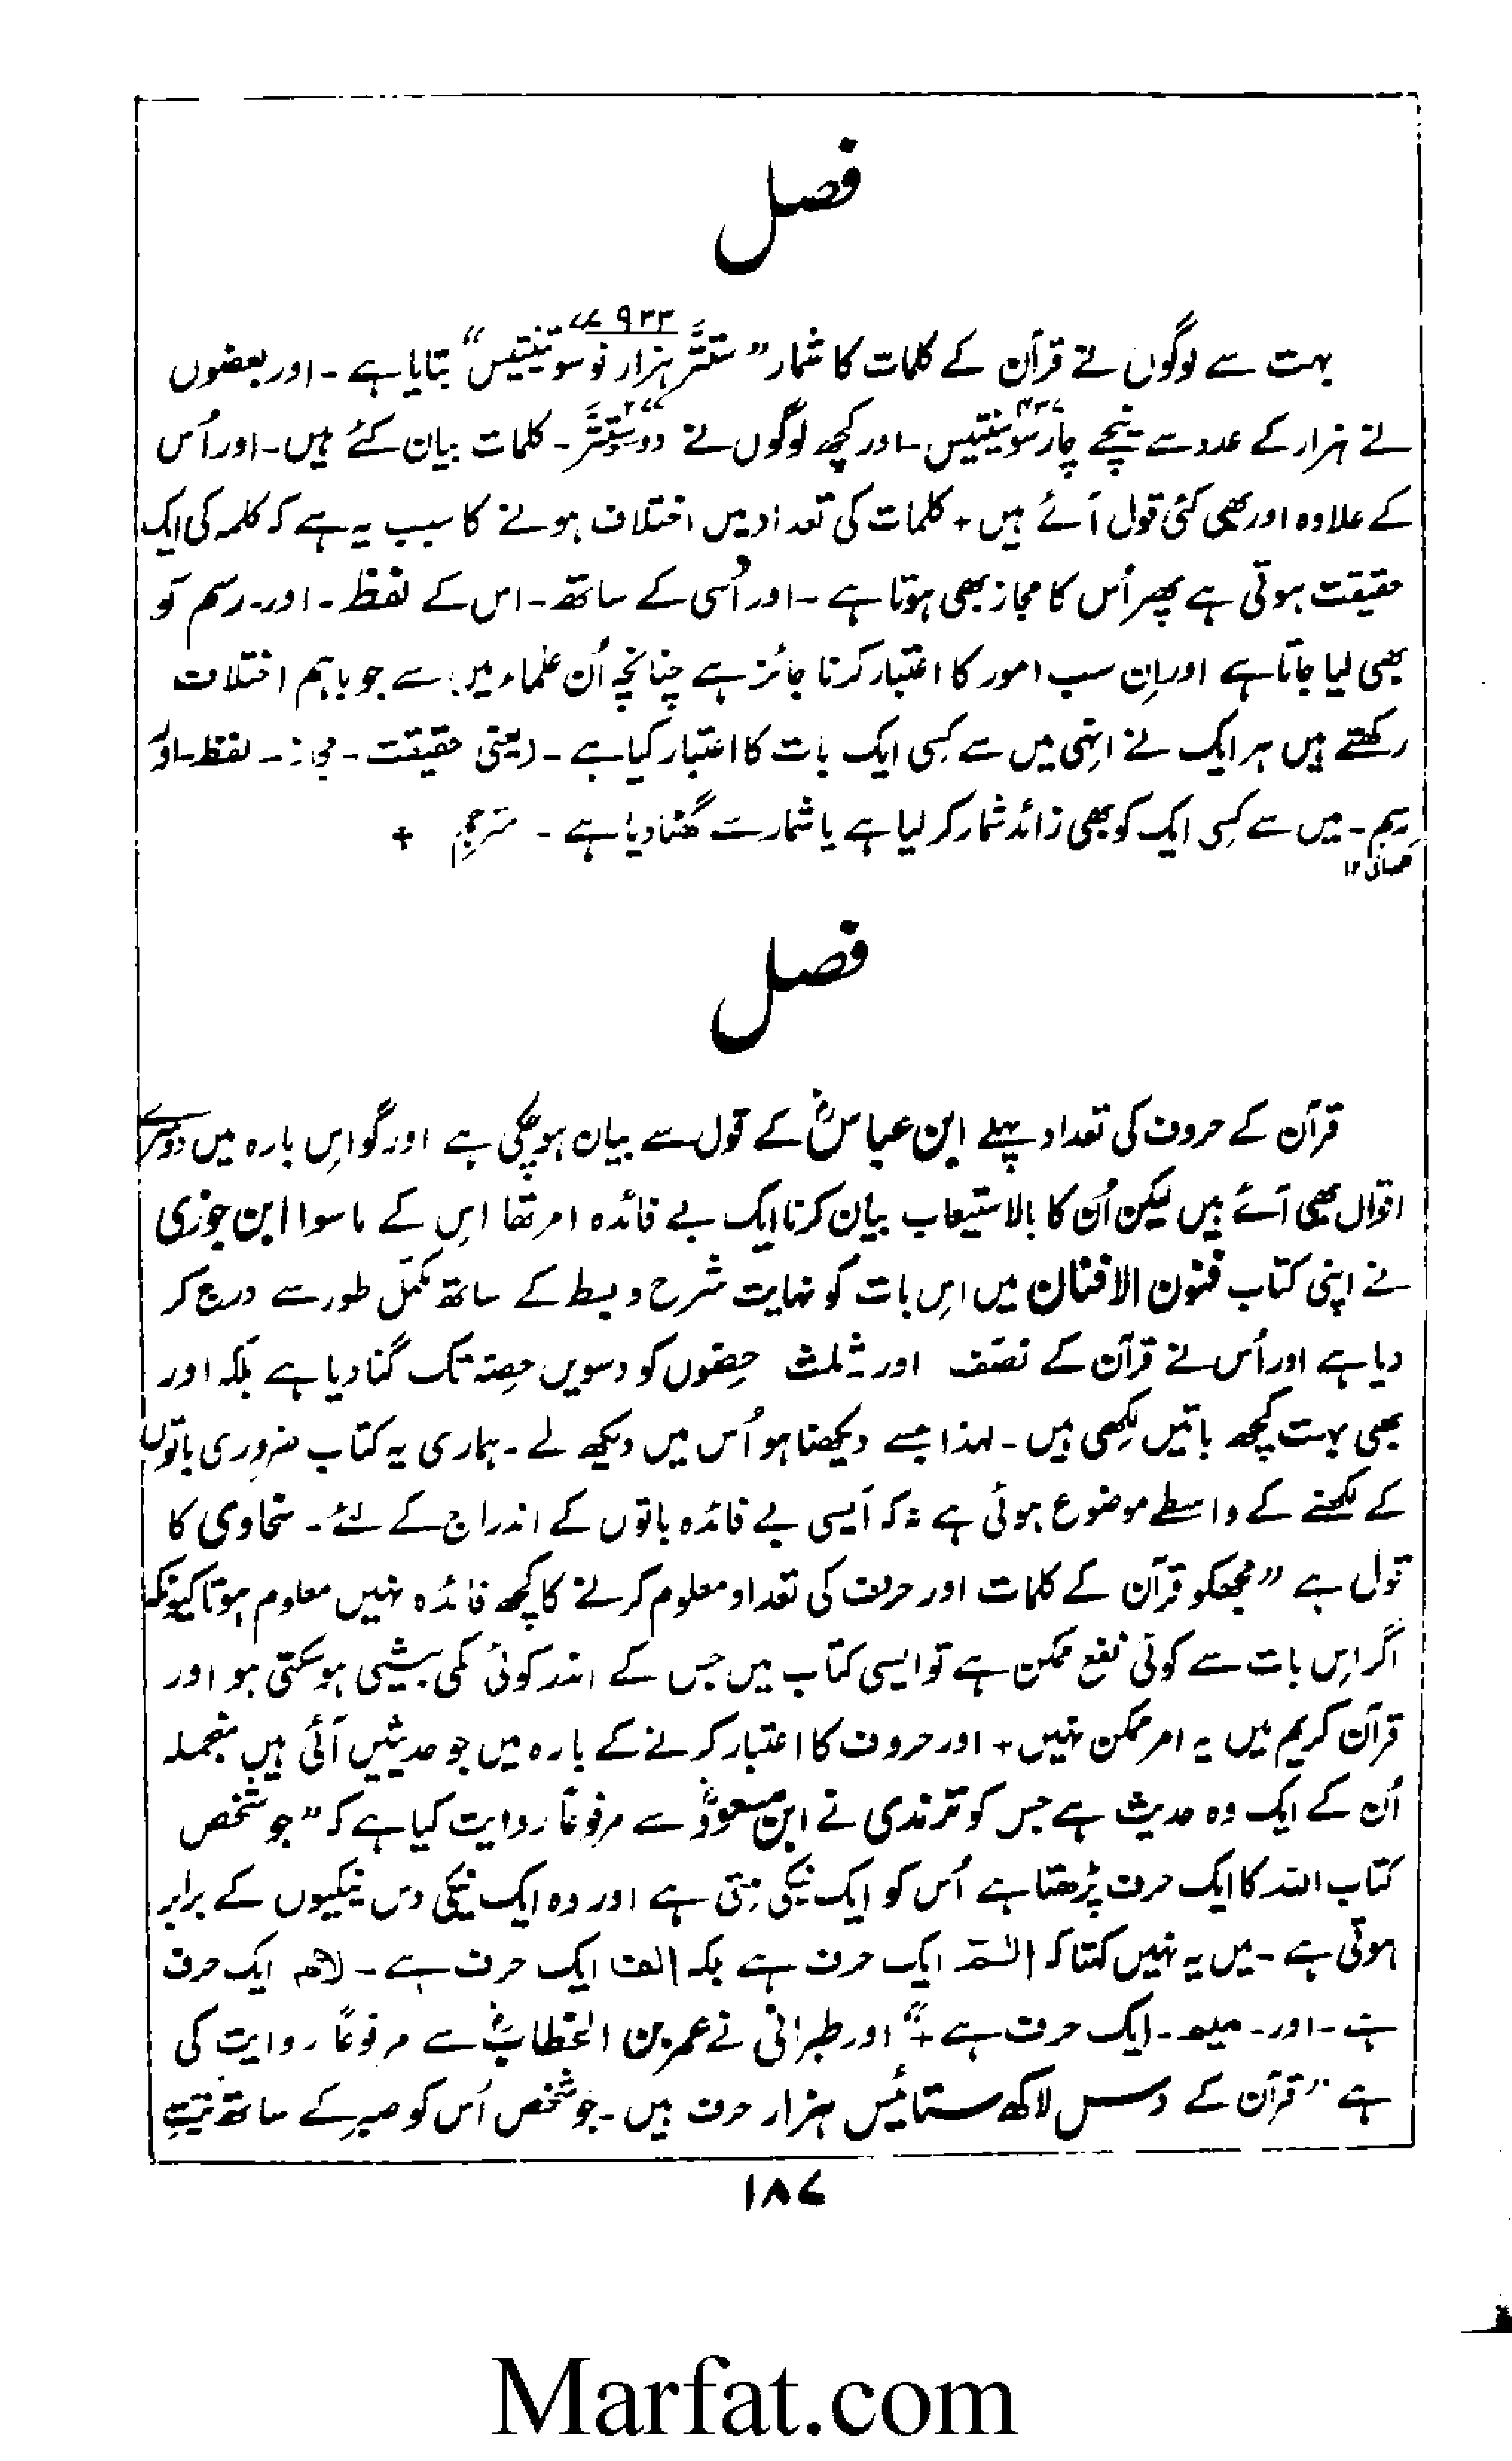 فصل
بہت سے لوگوں نے قرآن کے کلمات کا شمار "ستتر ہزار نو سو تینتیس" بتایا ہے۔ اور بعضوں
۷۷۹۳۳
نے ہزار کے عدد سے نیچے چار سو سینتیس۔ اور کچھ لوگوں نے دو سو ستتر۔ کلمات بیان کئے ہیں۔ اور اُس
۴۳۷ ۲۷۷
کے علاوہ اور بھی کئی قول آئے ہیں + کلمات کی تعداد میں اختلاف ہونے کا سبب یہ ہے کہ کلمہ کی ایک
حقیقت ہوتی ہے پھر اُس کا مجاز بھی ہوتا ہے۔ اور اُسی کے ساتھ۔ اس کے لفظ۔ اور۔ رسم کو
بھی لیا جاتا ہے اور اِن سب امور کا اعتبار کرنا جائز ہے چنانچہ اُن علماء میں سے جو باہم اختلاف
رکھتے ہیں ہر ایک نے انہی میں سے کسی ایک بات کا اعتبار کیا ہے۔ (یعنی حقیقت۔ مجاز۔ لفظ۔ اور
رسم۔ میں سے کسی ایک کو بھی زائد شمار کر لیا ہے یا شمار سے گھٹا دیا ہے۔ مترجم +
۱۲
فصل
قرآن کے حروف کی تعداد پہلے ابن عباسؓ کے قول سے بیان ہو چکی ہے اور گو اِس بارہ میں دوسرے
اقوال بھی آئے ہیں لیکن اُن کا بالاستیعاب بیان کرنا ایک بے فائدہ امر تھا اِس کے ماسوا ابن جوزی
نے اپنی کتاب فنون الافنان میں اِس بات کو نہایت شرح و بسط کے ساتھ مکمّل طور سے درج کر
دیا ہے اور اُس نے قرآن کے نصف اور ثلث حصّوں کو دسویں حصّہ تک گنا دیا ہے بلکہ اور
بھی بہت کچھ باتیں لکھی ہیں۔ لہذا جسے دیکھنا ہو اُس میں دیکھ لے۔ ہماری یہ کتاب ضروری باتوں
کے لکھنے کے واسطے موضوع ہوئی ہے نہ کہ اَیسی بے فائدہ باتوں کے اندراج کے لئے۔ سخاوی کا
قول ہے "مجھکو قرآن کے کلمات اور حروف کی تعداد معلوم کرنے کا کچھ فائدہ نہیں معلوم ہوتا کیونکہ
اگر اِس بات سے کوئی نفع ممکن ہے تو ایسی کتاب میں جس کے اندر کوئی کمی بیشی ہو سکتی ہو اور
قرآن کریم میں یہ امر ممکن نہیں + اور حروف کا اعتبار کرنے کے بارہ میں جو حدیثیں آئی ہیں منجملہ
اُن کے ایک وہ حدیث ہے جس کو ترمذی نے ابن مسعودؓ سے مرفوعاً روایت کیا ہے کہ "جو شخص
کتاب اللہ کا ایک حرف پڑھتا ہے اُس کو ایک نیکی ملتی ہے اور وہ ایک نیکی دس نیکیوں کے برابر
ہوتی ہے۔ میں یہ نہیں کہتا کہ الٓـمّٓ ایک حرف ہے بلکہ الف ایک حرف ہے۔ لام ایک حرف
ہے۔ اور۔ میم۔ ایک حرف ہے +" اور طبرانی نے عمر بن الخطابؓ سے مرفوعاً روایت کی
ہے "قرآن کے دس لاکھ ستائیس ہزار حرف ہیں۔ جو شخص اُس کو صبر کے ساتھ نیت
۱۸۷
Marfat.com